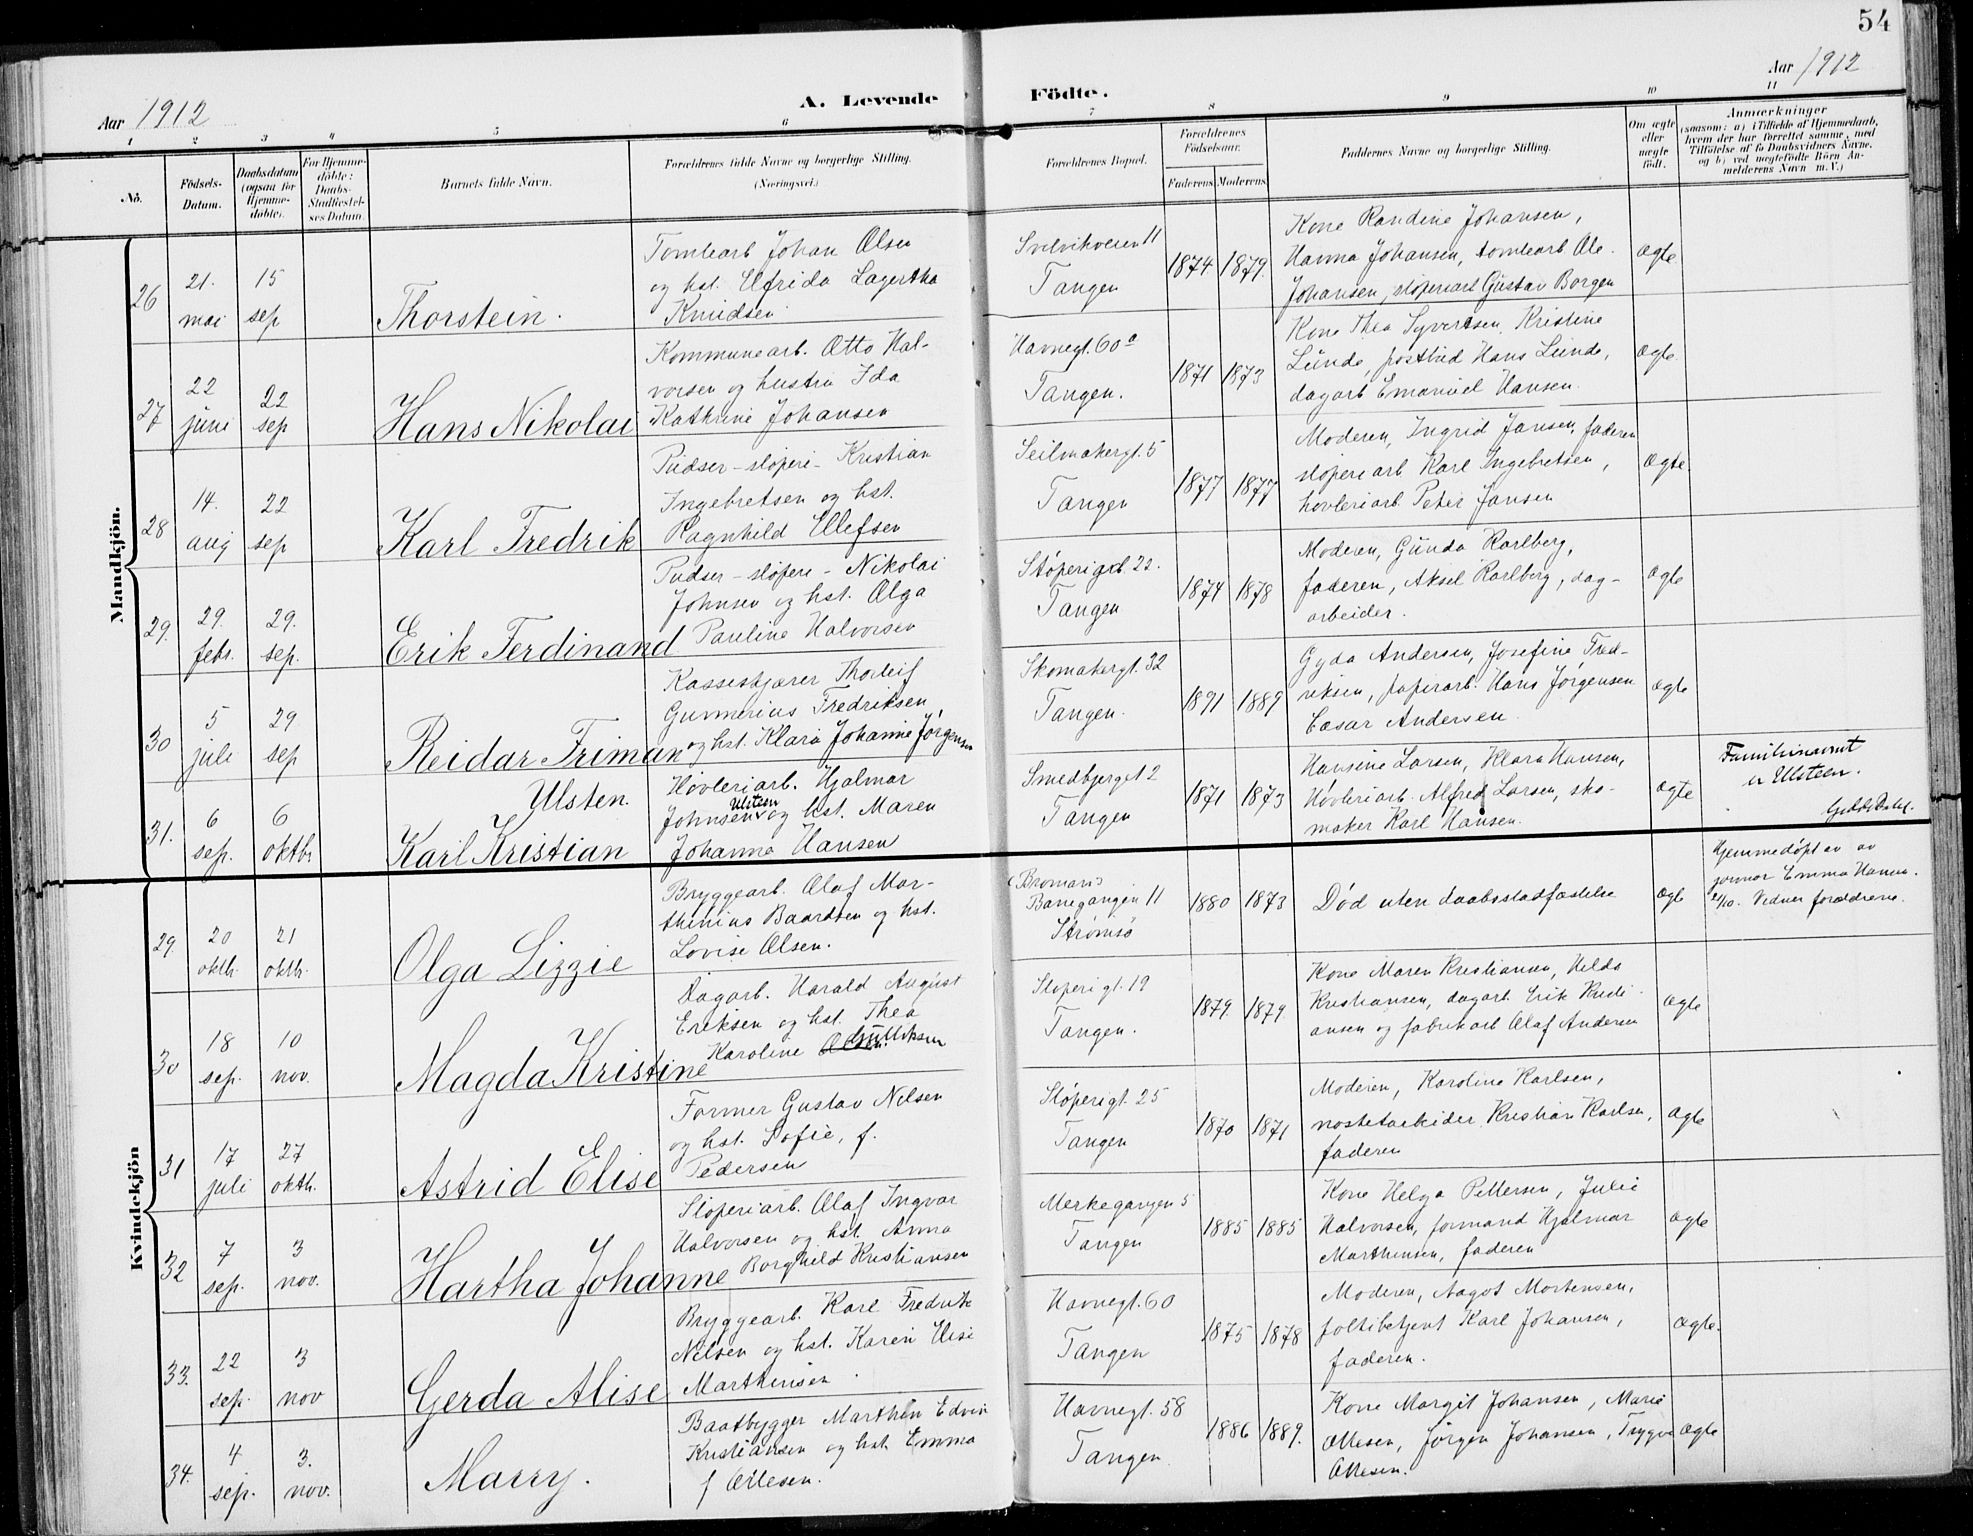 54
Aar 1912
A. Levende Födte.
Aar 1912
1 2 3 4 5 6 7 8 9 10 11
No.
Födsels-
Datum.
Daabsdatum
(ogsaa for
Hjemme-
döbte).
For Hjemme-
döbte:
Daabs-
Stadfæstel-
ses Datum.
Barnets fulde Navn.
Forældrenes fulde Navne og borgerlige Stilling.
(Næringsvei.)
Forældrenes Bopæl.
Forældrenes
Födselsaar.
Faderens Moderens
Faddernes Navne og borgerlige Stilling.
Om ægte
eller
uægte
födt.
Anmærkninger
(saasom: a) i Tilfælde af Hjemmedaab,
hvem der har forrettet samme, med
Tilföielse af to Daabsvidners Navne,
og b) ved uægtefödte Börn An-
melderens Navn m. V.)
Mandkjön.
26
21.
mai
15
sep
Thorstein.
Tomtearb Johan Olsen
og hst. Elfrida Lagertha
Knudsen
Svelvikveien 11
Tangen
1874 1879.
Kone Randine Johansen,
Hanna Johansen, tomtearb Ole
Johansen, støperiarb Gustav Borgen
Ægte
27
22
juni
22
sep
Hans Nikolai
Kommunearb. Otto Hal-
vorsen og hustru Ida
Kathrine Johansen
Havnegt. 60a
Tangen.
1871 1873
Kone Thea Syvertsen, Kristine
Lunde, postbud Hans Lunde,
dagarb Emanuel Hansen.
Ægte.
28
14.
aug
22
sep
Karl Fredrik
Pudser - støperi - Kristian
Ingebretsen og hst.
Ragnhild Ellefsen
Seilmakergt. 5
Tangen
1877 1877
Moderen, Ingrid Jansen, faderen
støperiarb Karl Ingebretsen,
høvleriarb. Peter Jansen
Ægte
29.
29.
febr.
29.
sep.
Erik Ferdinand
Pudser - støperi - Nikolai
Johnsen og hst. Olga
Pauline Halvorsen
Støperigt. 22.
Tangen
1874 1878
Moderen, Gunda Karlberg,
faderen, Aksel Karlberg, dag-
arbeider.
Ægte
30
5
juli
29
sep
Reidar Friman
Kasseskjærer Thorleif
Gunnerius Fredriksen,
og hst. Klara Johanne Jørgensen
Skomakergt. 32
Tangen.
1891 1889
Gyda Andersen, Josefine Fred-
riksen, papirarb. Hans Jørgensen
Cæsar Andersen.
Ægte
31.
6
sep.
6
oktbr
Ulsten.
Karl Kristian
Høvleriarb. Hjalmar
Ulsteen
Johnsen og hst. Maren
Johanna Hansen
Smedbjerget 2
Tangen
1871 1873
Hansine Larsen, Klara Hansen,
Høvleriarb. Alfred Larsen, sko-
maker Karl Hansen.
Ægte
Familienavnet
er Ulsteen.
Kvindekjön
29.
20
oktb.
21
oktb.
Olga Lizzie
Bryggearb. Olaf Mar-
thinius Baardsen og hst.
Lovise Olsen.
Banegangen 11
Strømsö
1880 1873
Död uten daabsstadfæstelse
Ægte
Hjemmedøpt av
jormor Emma Hansen.
21/10. Vidner forældrene.
30
18
sep.
10
nov.
Magda Kristine
Dagarb. Harald August
Eriksen og hst. Thea
Karoline Olsen. Gulliksen
Støperigt. 19
Tangen.
1879. 1879
Kone Maren Kristiansen, Hilda
Kristiansen, dagarb. Erik Kristi-
ansen og fabrikarb Olaf Andersen
Ægte
31
17
juli
27
oktb.
Astrid Elise
Former Gustav Nilsen
og hst. Sofie, f.
Pedersen
Støperigt. 25
Tangen
1870 1871
Moderen, Karoline Karlsen,
Kristian Karlsen,
faderen
Ægte
32
7
sep.
3
nov.
Hartha Johanne
Støperiarb. Olaf Ingvar
Halvorsen og hst. Anna
Borghild Kristiansen
Merkegangen 5
Tangen
1885 1885
Kone Helga Pettersen, Julie
Halvorsen, formand Hjalmar
Marthinsen, faderen
Ægte
33.
22
sep.
3
nov
Gerda Alise
Bryggearb. Karl Fredrik
Nilsen og hst. Karen Elise
Marthinsen.
Havnegt. 60
Tangen
1875 1878
Moderen, Aagot Mortensen,
politibetjent Karl Johansen,
faderen.
Ægte.
34.
4
sep.
3.
nov.
Marry.
Baatbygger Marthin Edvin
Kristiansen og hst. Emma
f Ottesen.
Havnegt. 58
Tangen.
1886 1889.
Kone Margit Johansen, Marie
Ottesen, Jørgen Johansen, Trygve
Ottesen.
Ægte